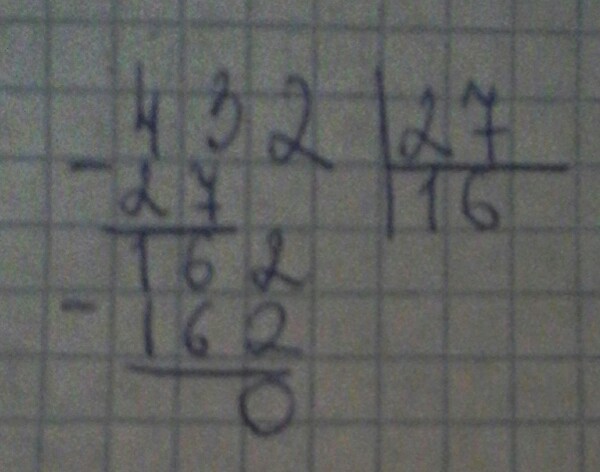 432 | 27
- 27 | 16
162
- 162
0